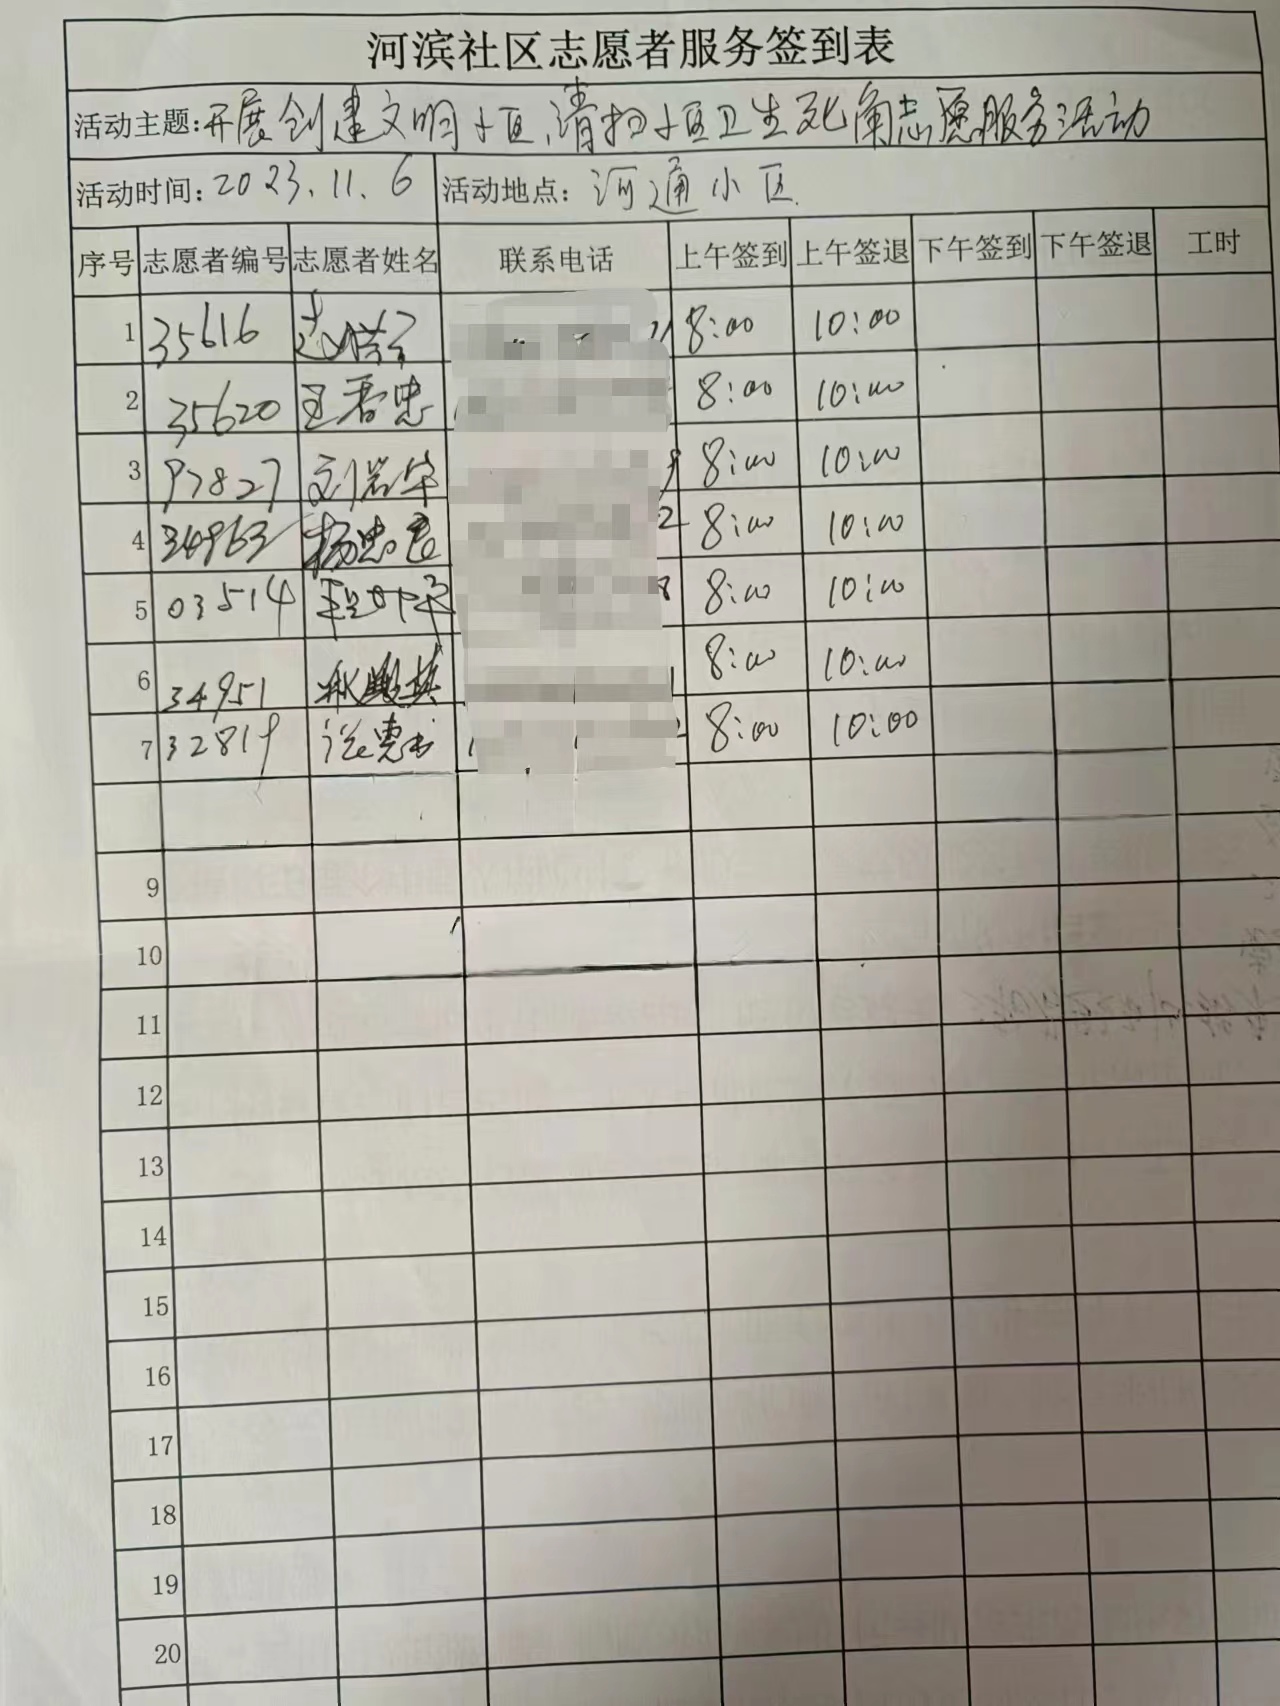 河滨社区志愿者服务签到表
活动主题:开展创建文明小区,清扫小区卫生死角志愿服务活动
活动时间:2023.11.6 活动地点:河通小区
序号 志愿者编号 志愿者姓名 联系电话 上午签到 上午签退 下午签到 下午签退 工时
1 35616 8:00 10:00
2 35620 王春忠 8:00 10:00
3 97827 刘岩华 8:00 10:00
4 34963 杨忠 8:00 10:00
5 03514 8:00 10:00
6 34951 8:00 10:00
7 32819 8:00 10:00
9
10
11
12
13
14
15
16
17
18
19
20